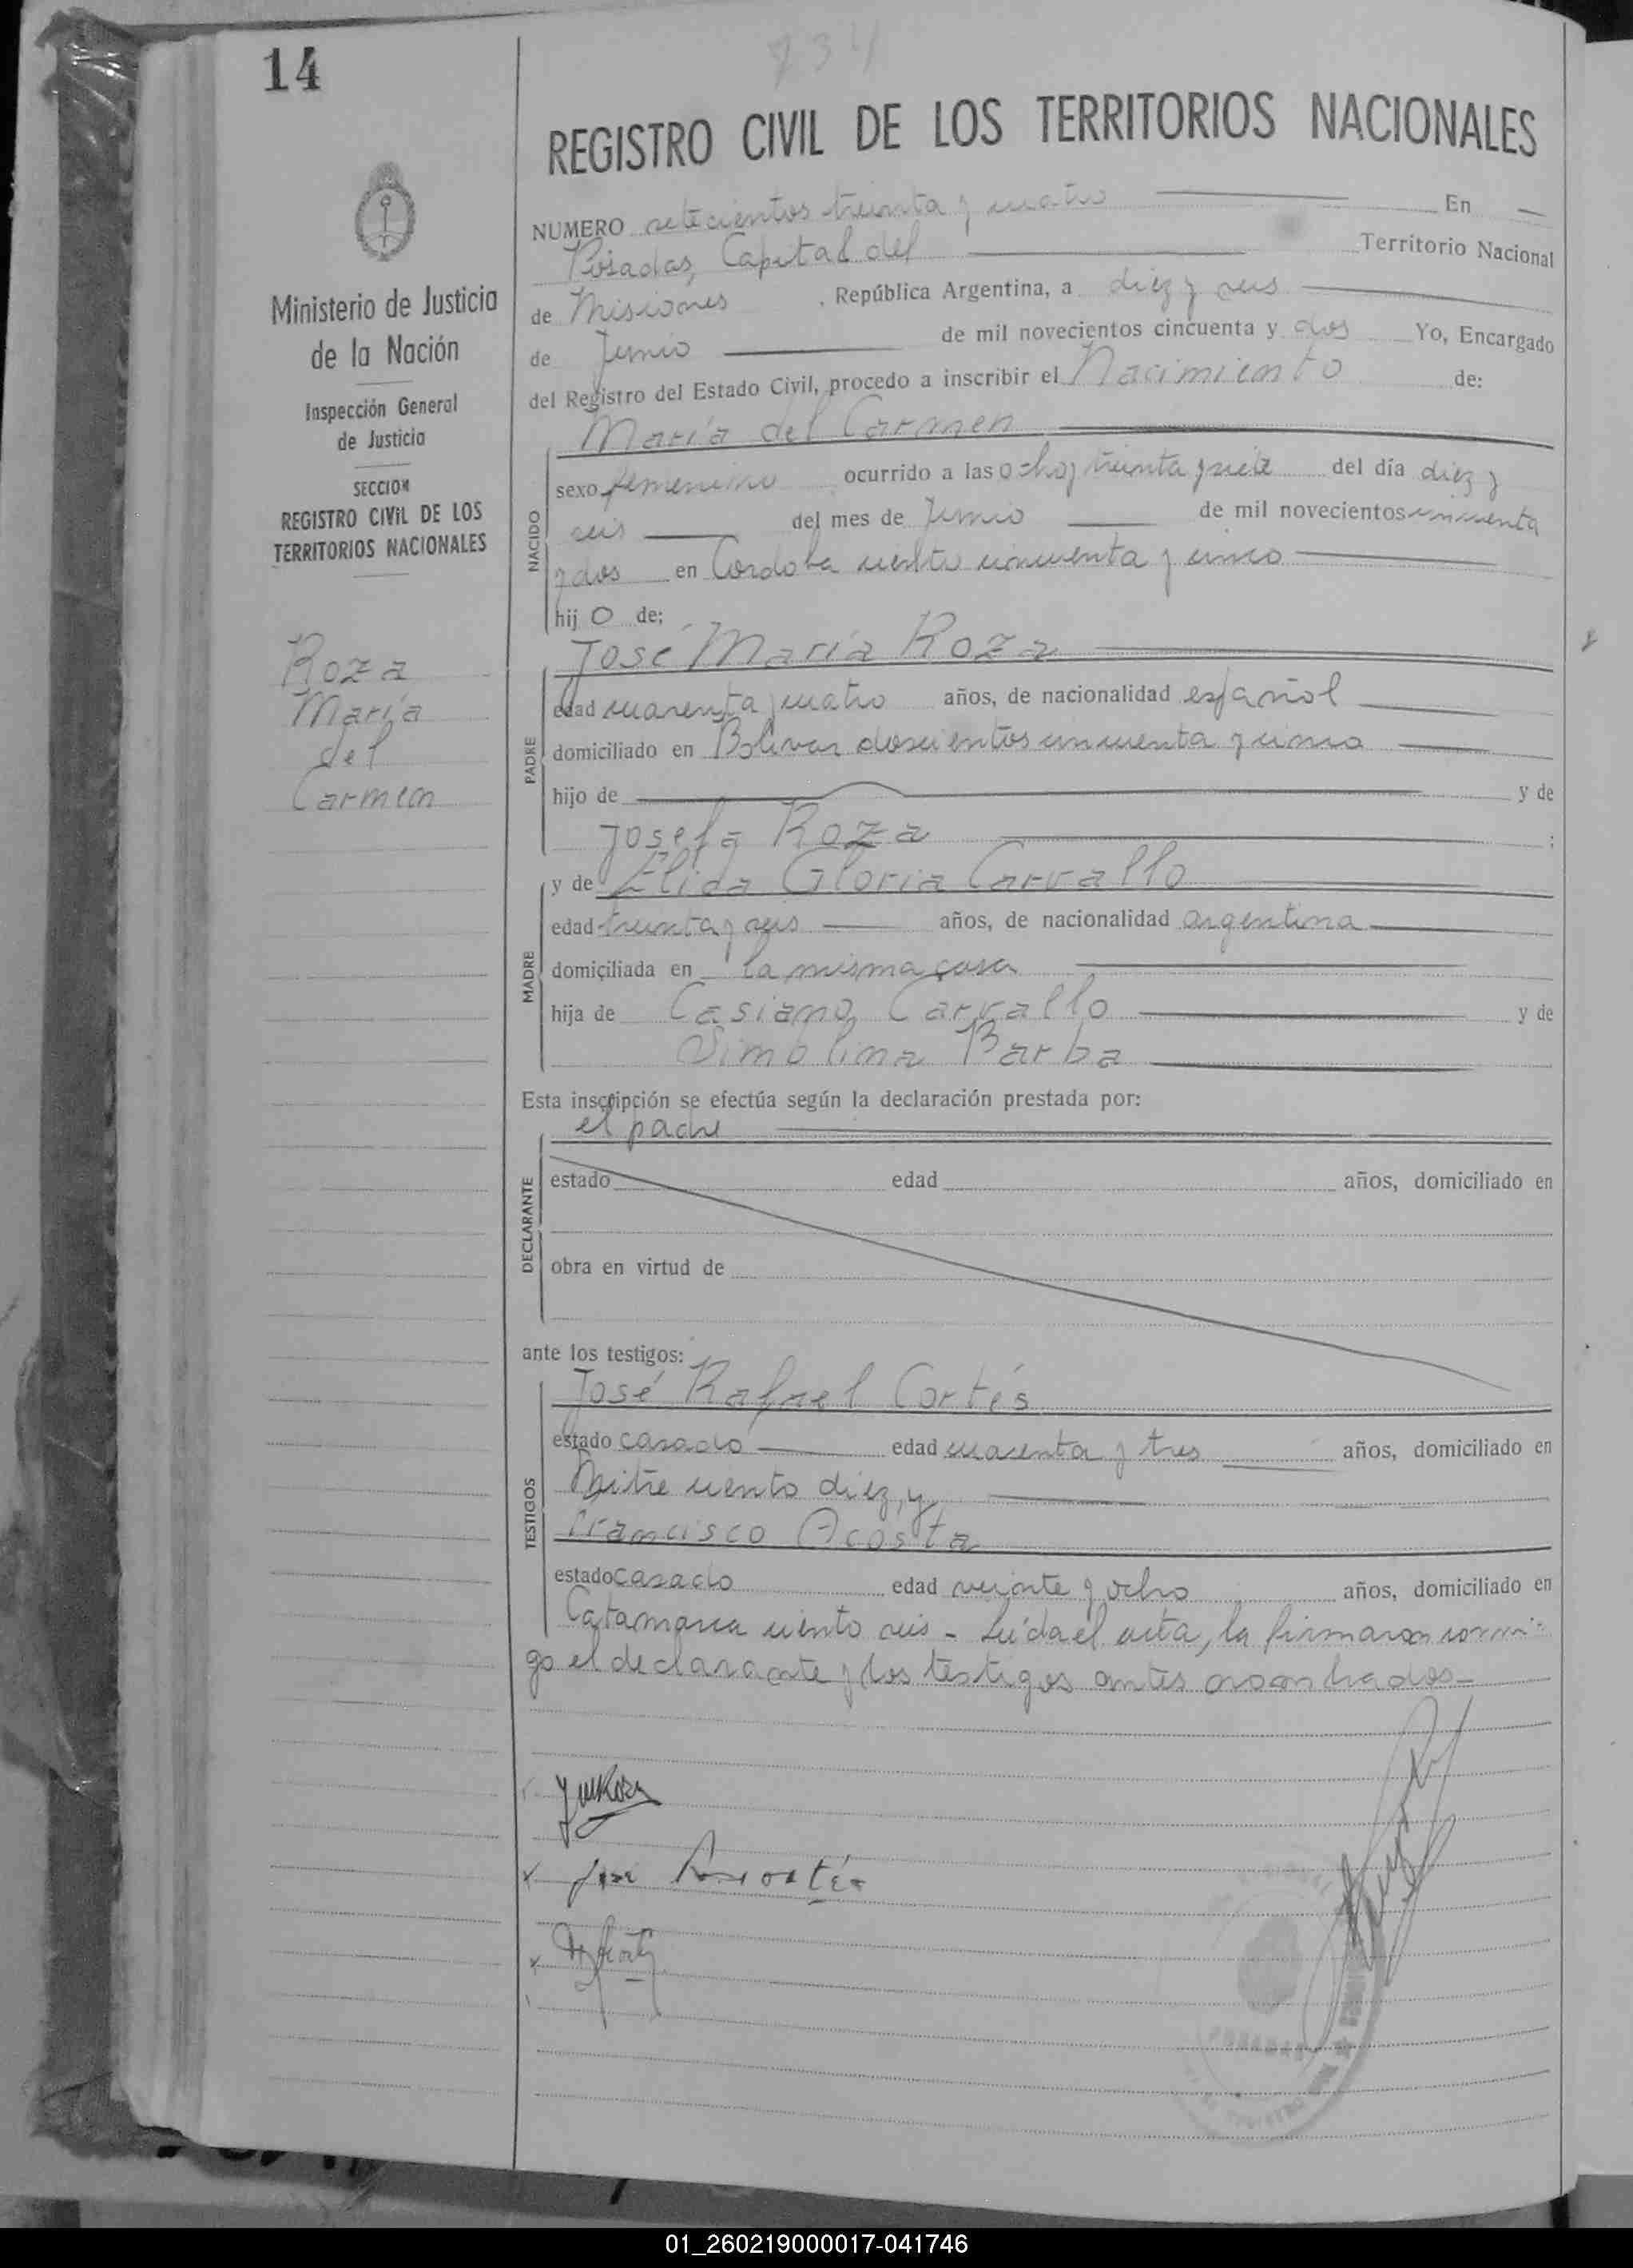 14
734
REGISTRO CIVIL DE LOS TERRITORIOS NACIONALES
Ministerio de Justicia
de la Nación
Inspección General
de Justicia
SECCION
REGISTRO CIVIL DE LOS
TERRITORIOS NACIONALES
Roza
María
del
Carmen
NUMERO setecientos treinta y cuatro En
Posadas, Capital del Territorio Nacional
de Misiones , República Argentina, a diez y seis
de Junio de mil novecientos cincuenta y dos Yo, Encargado
del Registro del Estado Civil, procedo a inscribir el Nacimiento de:
NACIDO
María del Carmen
sexo femenino ocurrido a las ocho y treinta y siete del día diez y
seis del mes de Junio de mil novecientos cincuenta
y dos en Cordoba ciento cincuenta y cinco
hij o de;
PADRE
José María Roza
edad cuarenta y cuatro años, de nacionalidad español
domiciliado en Bolivar doscientos cincuenta y cinco
hijo de y de
Josefa Roza ;
MADRE
y de Elida Gloria Carvallo
edad treinta y seis años, de nacionalidad argentina
domiciliada en la misma casa
hija de Casiano Carvallo y de
Simolina Barba
Esta inscripción se efectúa según la declaración prestada por:
el padre
DECLARANTE
estado edad años, domiciliado en
obra en virtud de
ante los testigos:
TESTIGOS
José Rafael Cortés
estado casado edad cuarenta y tres años, domiciliado en
Mitre ciento diez, y
Francisco Acosta
estado casado edad veinte y ocho años, domiciliado en
Catamarca ciento seis - Leída el acta, la firmaron conmi-
go el declarante y los testigos antes nombrados-
JMRoza
José Cortés
01_260219000017-041746